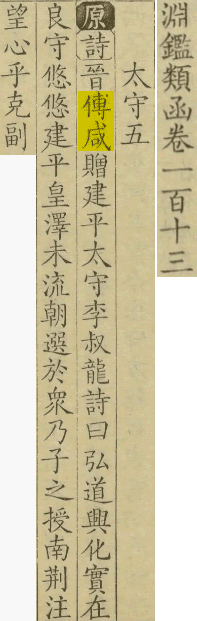 淵鑑類函卷一百十三
太守五
原詩晉傅咸贈建平太守李叔龍詩曰弘道興化實在
良守悠悠建平皇澤未流朝選於衆乃子之授南荆注
望心乎克副